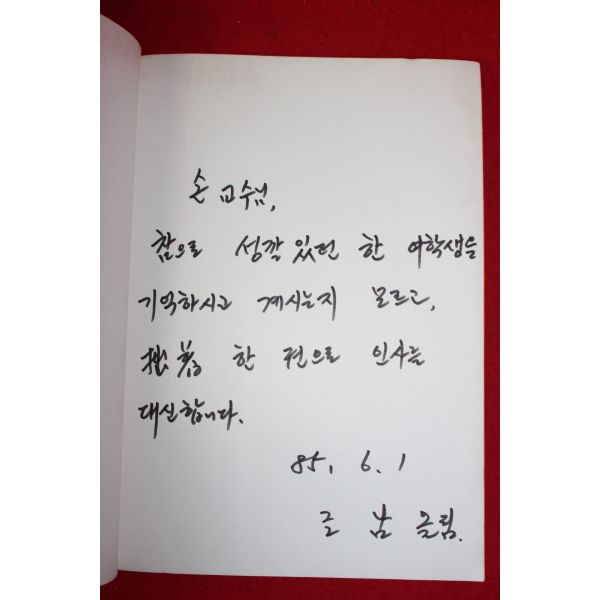 손 교수님,
참으로 성깔 있던 한 여학생을
기억하시고 계시는지 모르고,
拙著 한 권으로 인사를
대신합니다.
85. 6. 1
남 올림.